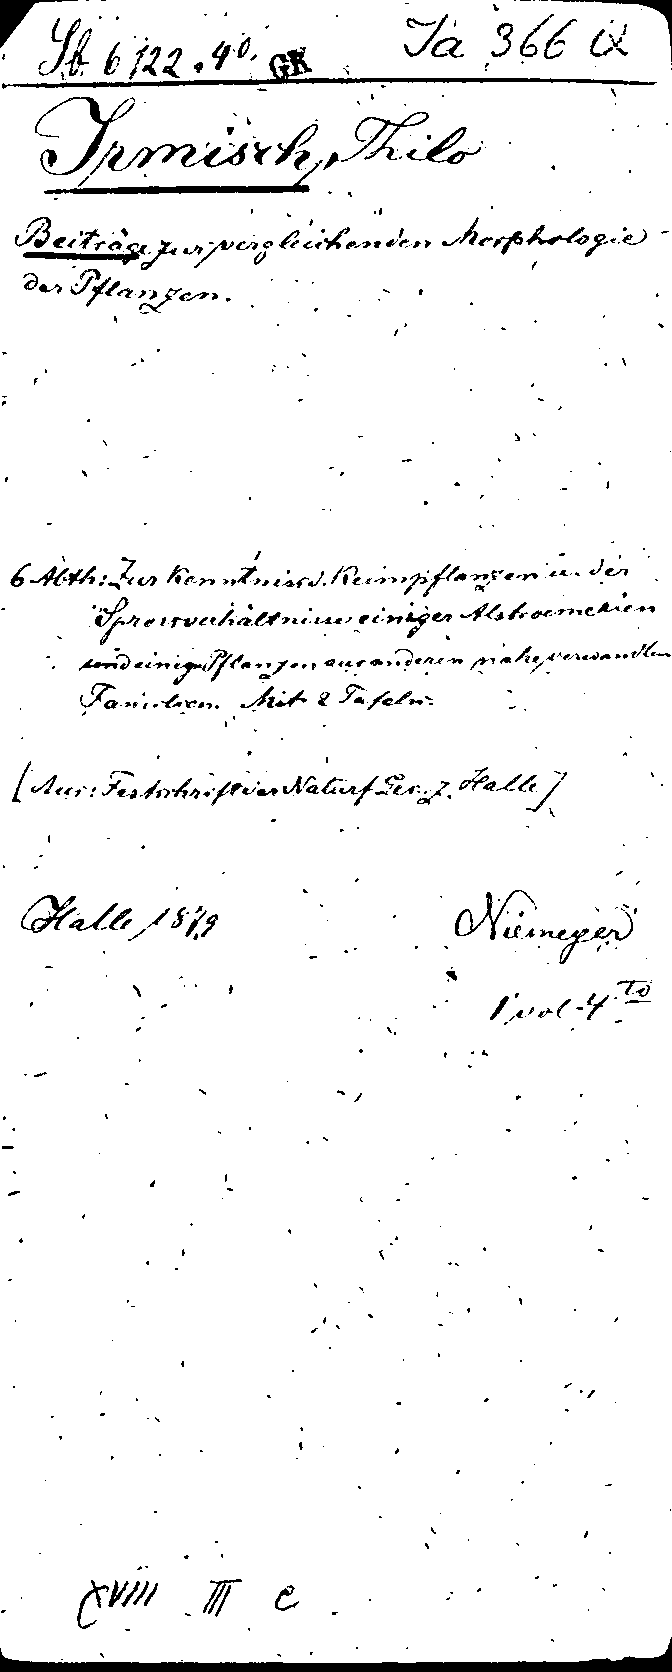 Sb 6122.4°. GK Ja 366 IX
Irmisch, Thilo
Beiträge zur vergleichenden Morphologie
der Pflanzen.
6 Abth: Zur Kenntniss d. Keimpflanzen u. der
Sprossverhältnisse einiger Alstroemerien
und einiger Pflanzen aus anderen nahe verwandten
Familien. Mit 2 Tafeln.
[Aus: Festschrift der Naturf. Ges. z. Halle]
Halle, 1879 Niemeyer
1 vol-4to
XVIII III e